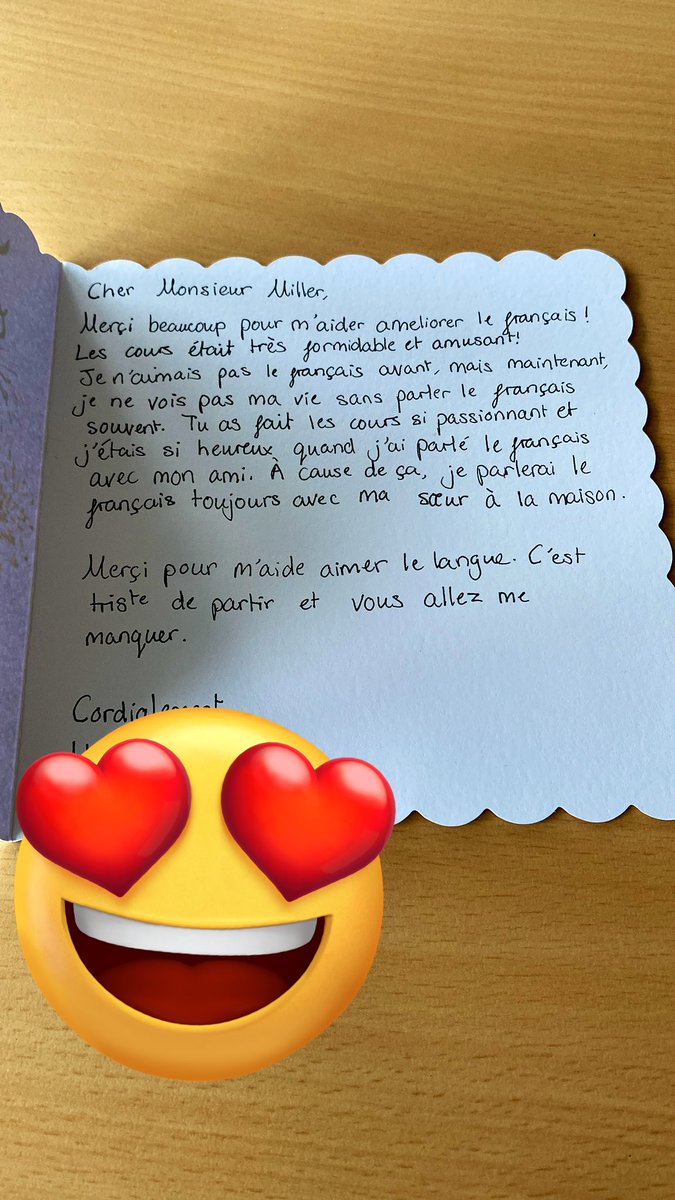 Cher Monsieur Miller,
Merçi beaucoup pour m'aider ameliorer le français!
Les cours était très formidable et amusant!
Je n'aimais pas le français avant, mais maintenant,
je ne vois pas ma vie sans parler le français
souvent. Tu as fait les cours si passionnant et
j'étais si heureux quand j'ai parlé le français
avec mon ami. À cause de ça, je parlerai le
français toujours avec ma sœur à la maison.
Merçi pour m'aide aimer le langue. C'est
triste de partir et vous allez me
manquer.
Cordialement